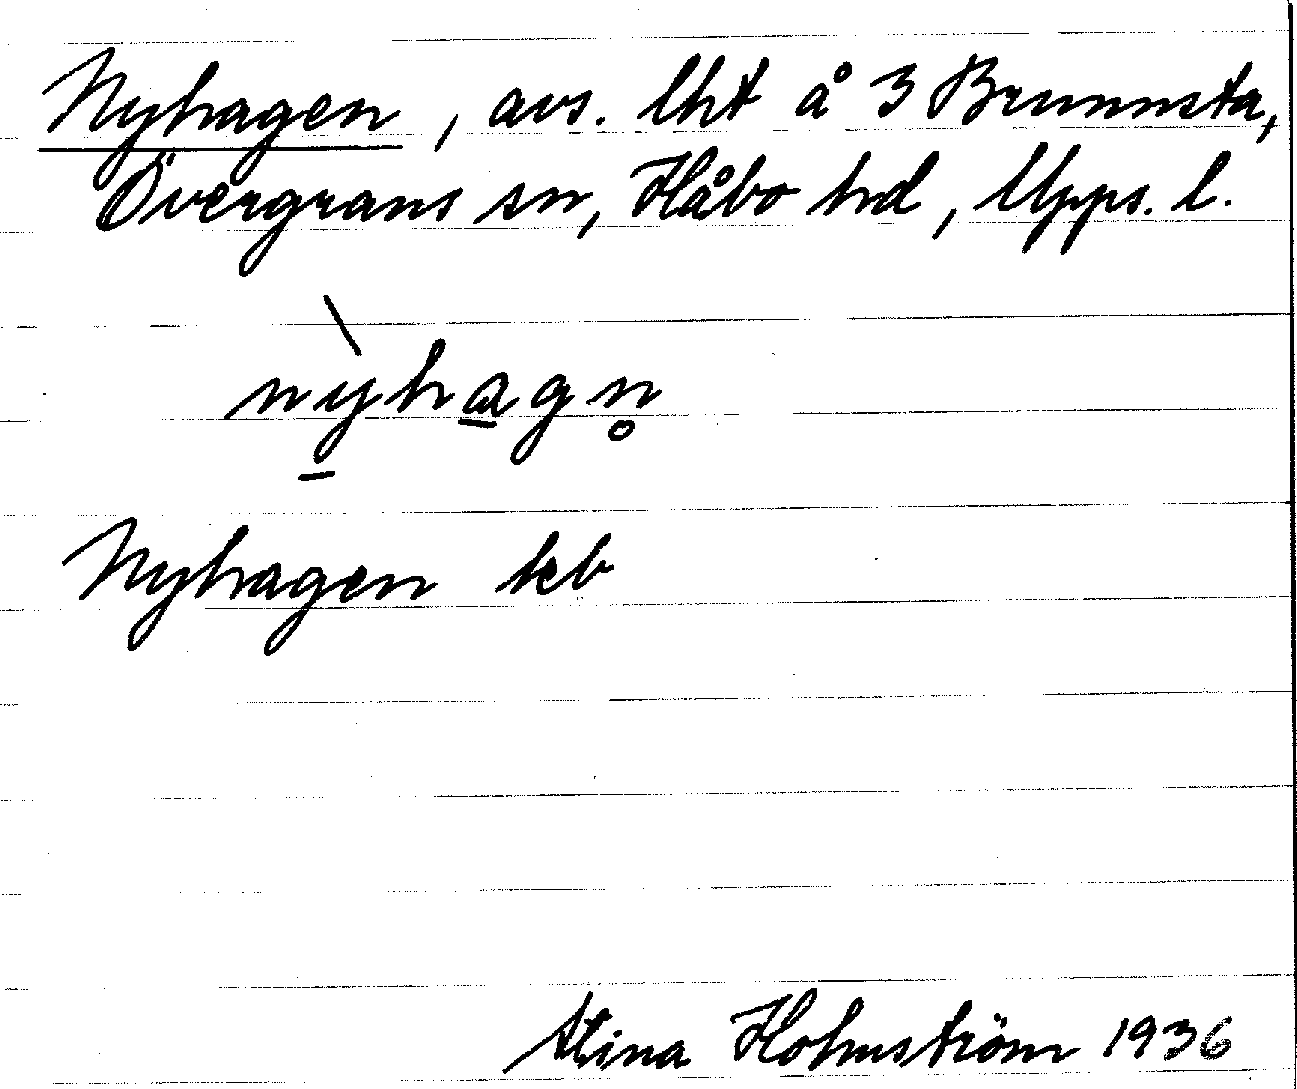 Nyhagen, avs. lht å 3 Brunnsta,
Övergrans sn, Håbo hd, Upps. l.
nỳ̠ha̠gn̥
Nyhagen keb
Stina Holmström 1936